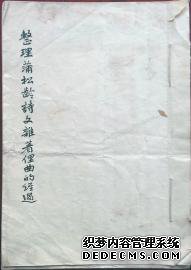 整理蒲松龄詩文雜著俚曲的经過
织梦内容管理系统
DEDECMS.COM